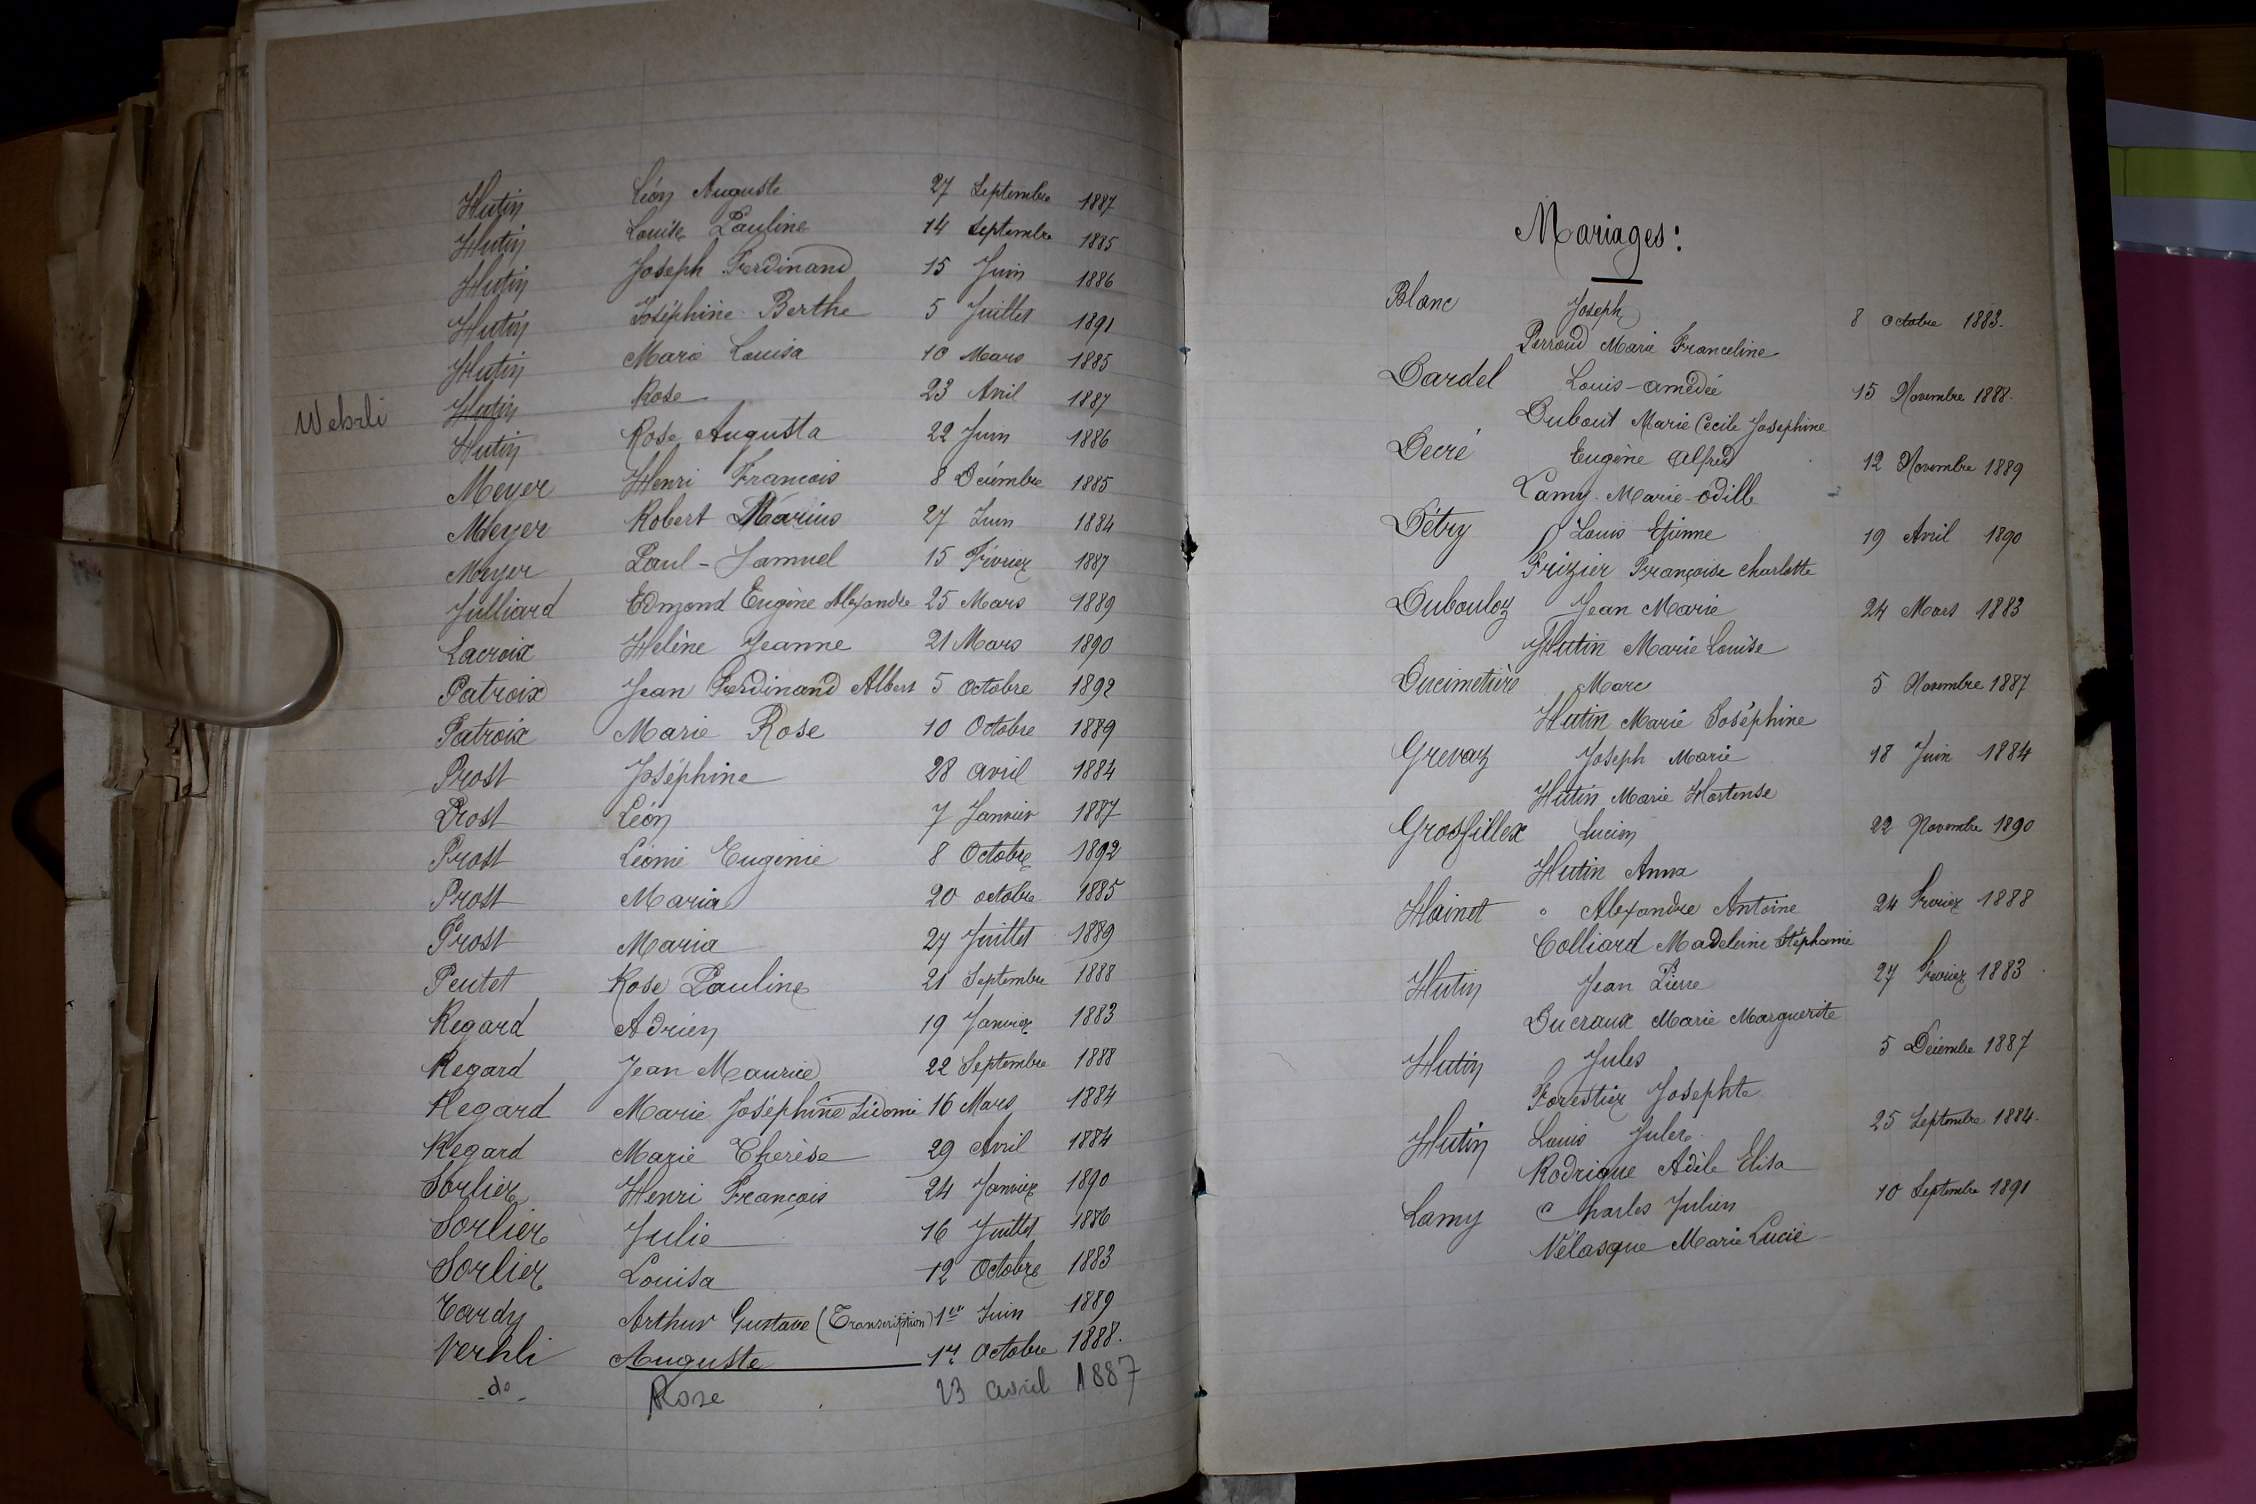 Hutin Léon Auguste 27 Septembre 1887
Hutin Louise Pauline 14 Septembre 1885
Hutin Joseph Ferdinand 15 Juin 1886
Hutin Joséphine Berthe 5 Juillet 1891
Hutin Marie Louisa 10 Mars 1885
Wehrli Hutin Rose 23 Avril 1887
Hutin Rose Augusta 22 Juin 1886
Meyer Henri François 8 Décembre 1885
Meyer Robert Marius 27 Juin 1884
Meyer Paul-Samuel 15 Février 1887
Julliard Edmond Eugène Alexandre 25 Mars 1889
Lacroix Helène Jeanne 21 Mars 1890
Patroix Jean Ferdinand Albert 5 Octobre 1892
Patroix Marie Rose 10 Octobre 1889
Prost Joséphine 28 avril 1884
Prost Léon 7 Janvier 1887
Prost Léonie Eugénie 8 Octobre 1892
Prost Maria 20 octobre 1885
Prost Maria 27 Juillet 1889
Peutet Rose Pauline 21 Septembre 1888
Regard Adrien 19 Janvier 1883
Regard Jean Maurice 22 Septembre 1888
Regard Marie Joséphine Sidonie 16 Mars 1884
Regard Marie Therèse 29 Avril 1884
Sorlier Henri François 24 Janvier 1890
Sorlier Julie 16 Juillet 1886
Sorlier Louisa 12 Octobre 1883
Tardy Arthur Gustave (Transcription) 1er Juin 1889
Verhli Auguste 1er Octobre 1888.
-do- Rose 23 avril 1887
Mariages:
Blanc Joseph 8 octobre 1883.
Perroud Marie Franceline
Dardel Louis-amédée 15 Novembre 1888.
Dubout Marie Cécile Josephine
Decré Eugène Alfred 12 Novembre 1889
Lamy Marie-Odille
Détry Louis Etienne 19 Avril 1890
Frizier Françoise Charlotte
Dubouloz Jean Marie 24 Mars 1883
Hutin Marie Louise
Ducimetière Marc 5 Novembre 1887
Hutin Marie Joséphine
Grevaz Joseph Marie 18 Juin 1884
Hutin Marie Hortense
Grosfillex Lucien 22 Novembre 1890
Hutin Anna
Hainet Alexandre Antoine 24 Février 1888
Colliard Madeleine Stéphanie
Hutin Jean Pierre 27 Février 1883
Ducraux Marie Marguerite
Hutin Jules 5 Décembre 1887
Forestier Josephte
Hutin Louis Jules 25 Septembre 1884.
Rodrigue Adèle Elisa
Lamy Charles Julien 10 Septembre 1891
Vélasque Marie Lucie